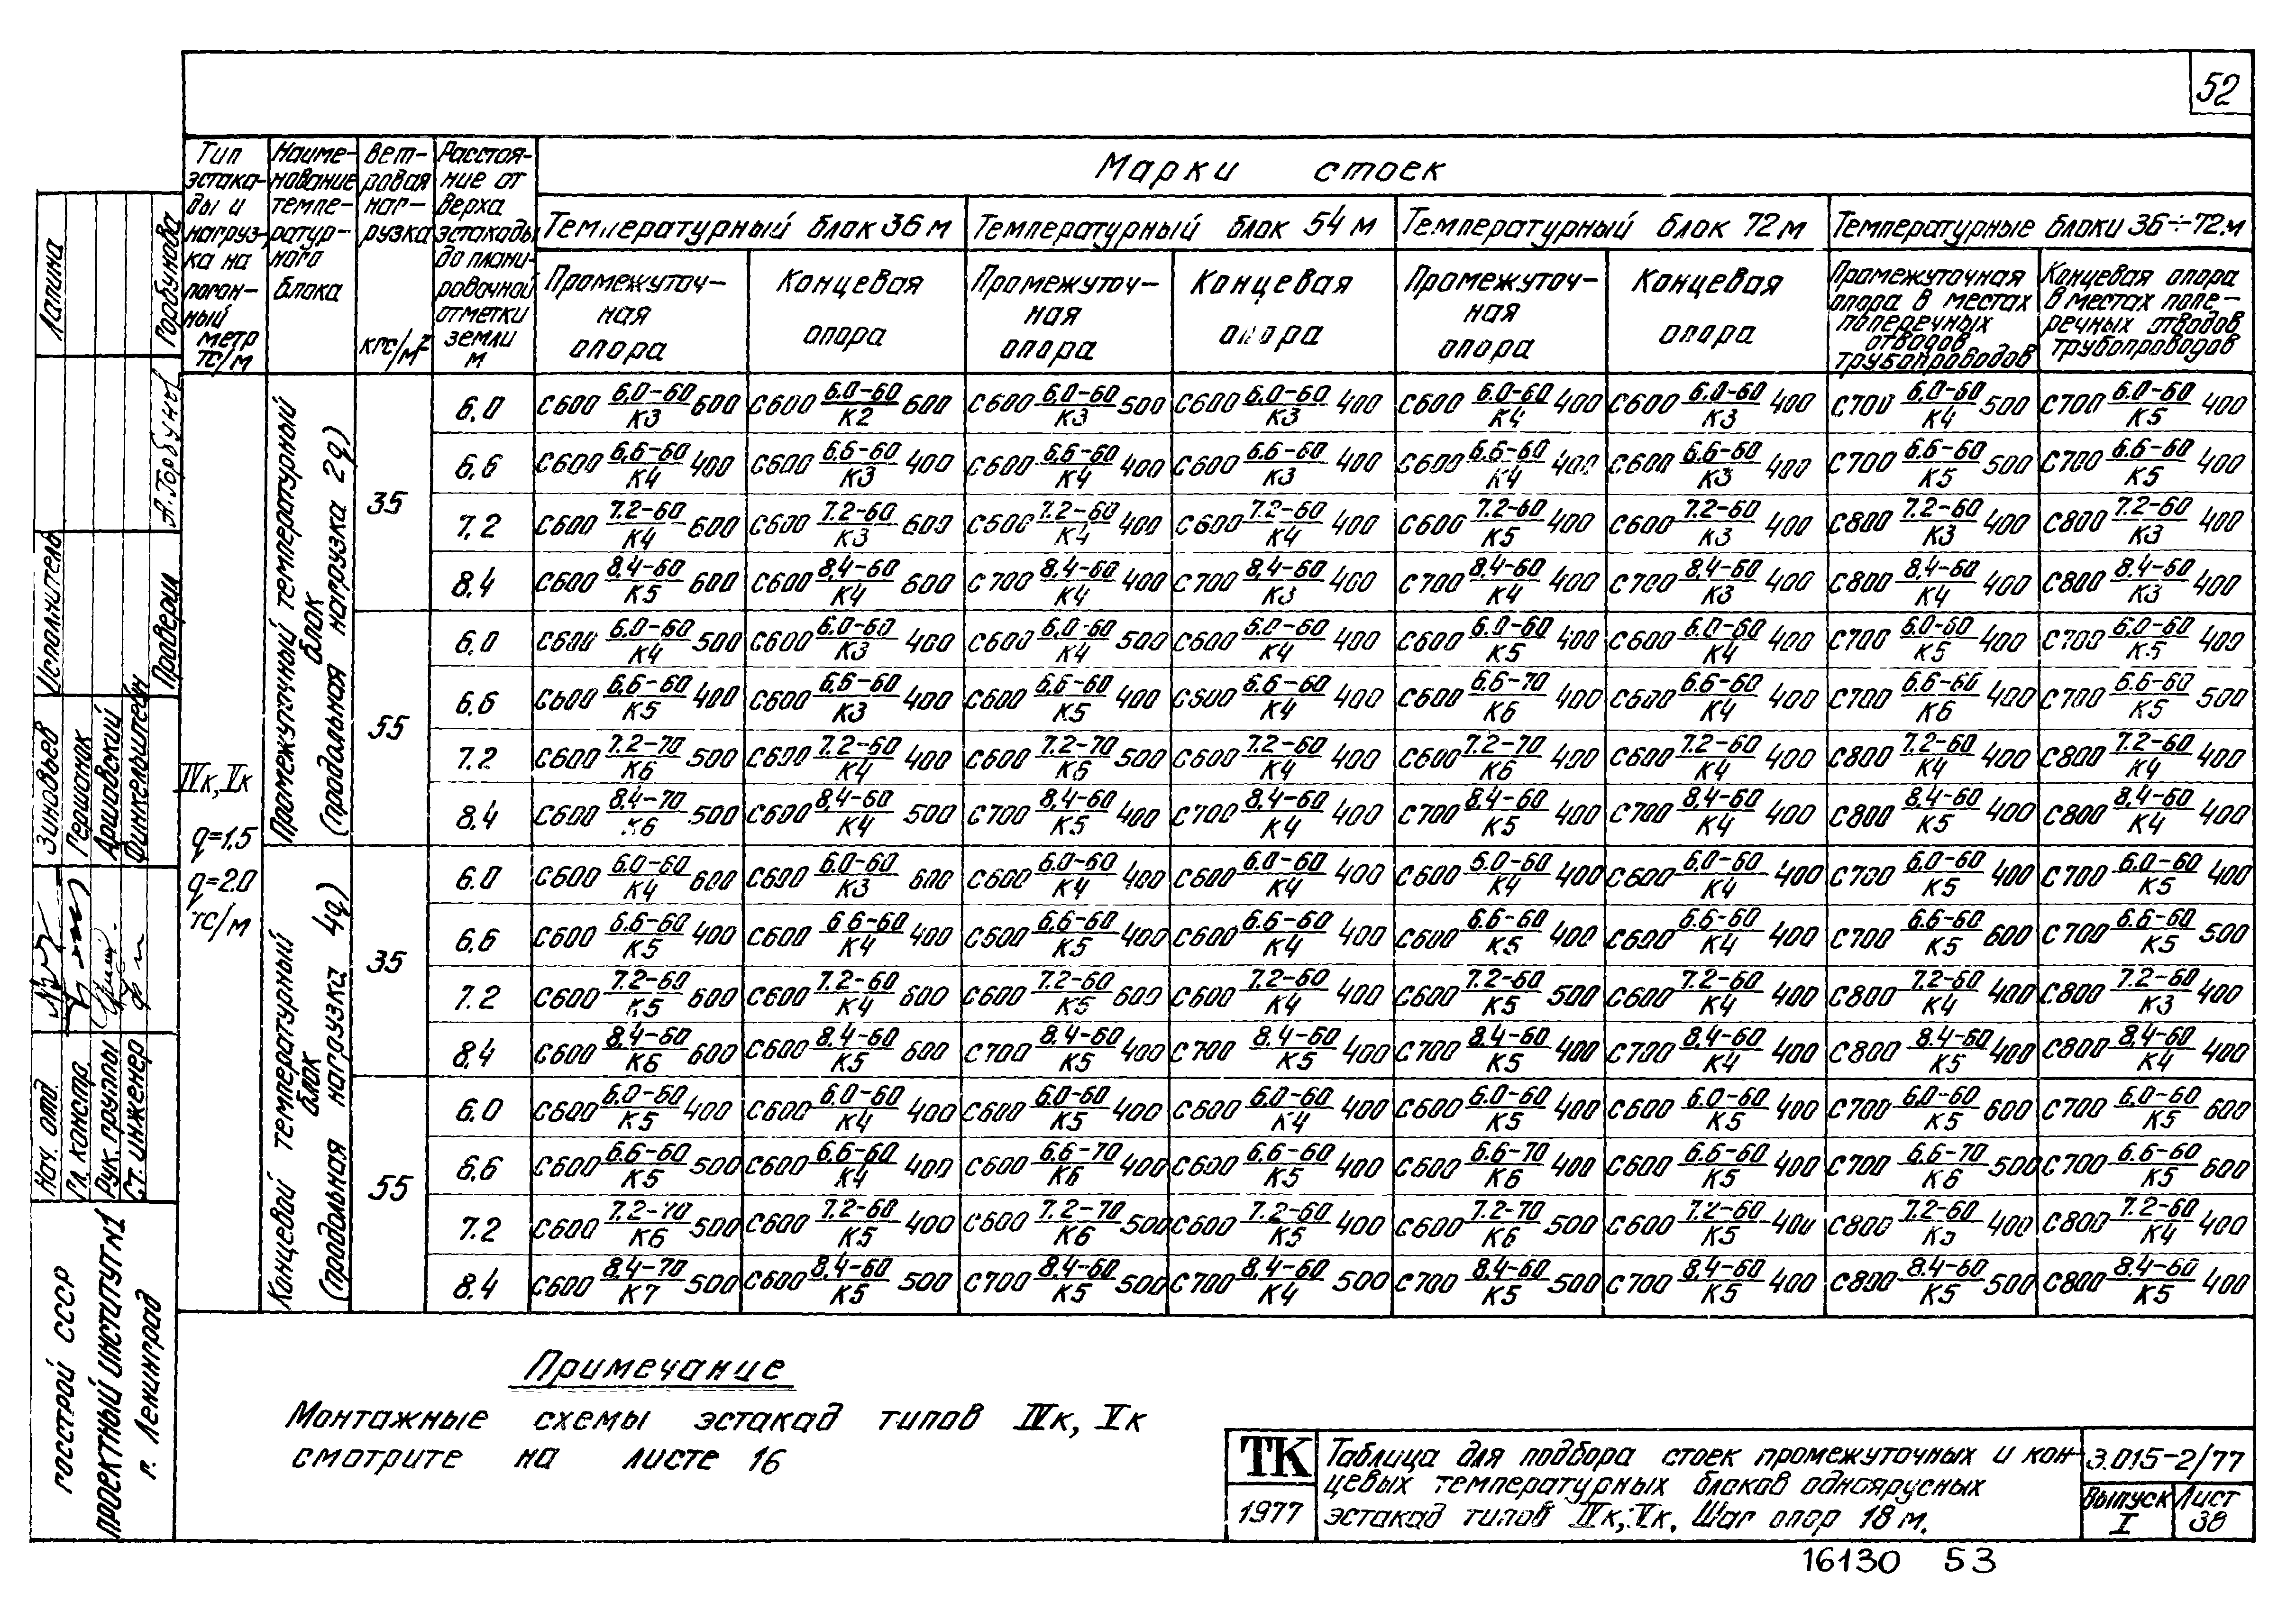 52
Тип эстака-ды и нагруз-ка на погон-ный метр тс/м
Наиме-нование темпе-ратур-ного блока
Вет-ровая наг-рузка кгс/м²
Расстоя-ние от верха эстакады до плани-ровочной отметки земли м
Марки стоек
Температурный блок 36 м
Температурный блок 54 м
Температурный блок 72 м
Температурные блоки 36÷72 м
Промежуточ-ная опора
Концевая опора
Промежуточ-ная опора
Концевая опора
Промежуточ-ная опора
Концевая опора
Промежуточная опора в местах поперечных отводов трубопроводов
Концевая опора в местах попе-речных отводов трубопроводов
IVк, Vк
q=1.5
q=2.0
тс/м
Промежуточный температурный блок (продольная нагрузка 2q)
35
6.0 С600 6.0-60/К3 600 С600 6.0-60/К2 600 С600 6.0-60/К3 500 С600 6.0-60/К3 400 С600 6.0-60/К4 400 С600 6.0-60/К3 400 С700 6.0-60/К4 500 С700 6.0-60/К5 400
6.6 С600 6.6-60/К4 400 С600 6.6-60/К3 400 С600 6.6-60/К4 400 С600 6.6-60/К3 400 С600 6.6-60/К4 400 С600 6.6-60/К3 400 С700 6.6-60/К5 500 С700 6.6-60/К5 400
7.2 С600 7.2-60/К4 600 С600 7.2-60/К3 600 С600 7.2-60/К4 400 С600 7.2-60/К4 400 С600 7.2-60/К5 400 С600 7.2-60/К3 400 С800 7.2-60/К3 400 С800 7.2-60/К3 400
8.4 С600 8.4-60/К5 600 С600 8.4-60/К4 600 С700 8.4-60/К4 400 С700 8.4-60/К3 400 С700 8.4-60/К4 400 С700 8.4-60/К3 400 С800 8.4-60/К4 400 С800 8.4-60/К3 400
55
6.0 С600 6.0-60/К4 500 С600 6.0-60/К3 400 С600 6.0-60/К4 500 С600 6.0-60/К4 400 С600 6.0-60/К5 400 С600 6.0-60/К4 400 С700 6.0-60/К5 400 С700 6.0-60/К5 400
6.6 С600 6.6-60/К5 400 С600 6.6-60/К3 400 С600 6.6-60/К5 400 С600 6.6-60/К4 400 С600 6.6-70/К6 400 С600 6.6-60/К4 400 С700 6.6-60/К6 400 С700 6.6-60/К5 500
7.2 С600 7.2-70/К6 500 С600 7.2-60/К4 400 С600 7.2-70/К6 500 С600 7.2-60/К4 400 С600 7.2-70/К6 400 С600 7.2-60/К4 400 С800 7.2-60/К4 400 С800 7.2-60/К4 400
8.4 С600 8.4-70/К6 500 С600 8.4-60/К4 500 С700 8.4-60/К5 400 С700 8.4-60/К4 400 С700 8.4-60/К5 400 С700 8.4-60/К4 400 С800 8.4-60/К5 400 С800 8.4-60/К4 400
Концевой температурный блок (продольная нагрузка 4q)
35
6.0 С600 6.0-60/К4 600 С600 6.0-60/К3 600 С600 6.0-60/К4 400 С600 6.0-60/К4 400 С600 6.0-60/К4 400 С600 6.0-60/К4 400 С700 6.0-60/К5 400 С700 6.0-60/К5 400
6.6 С600 6.6-60/К5 400 С600 6.6-60/К4 400 С600 6.6-60/К5 400 С600 6.6-60/К4 400 С600 6.6-60/К5 400 С600 6.6-60/К4 400 С700 6.6-60/К5 600 С700 6.6-60/К5 500
7.2 С600 7.2-60/К5 600 С600 7.2-60/К4 600 С600 7.2-60/К5 600 С600 7.2-60/К4 400 С600 7.2-60/К5 500 С600 7.2-60/К4 400 С800 7.2-60/К4 400 С800 7.2-60/К3 400
8.4 С600 8.4-60/К6 600 С600 8.4-60/К5 600 С700 8.4-60/К5 400 С700 8.4-60/К5 400 С700 8.4-60/К5 400 С700 8.4-60/К4 400 С800 8.4-60/К5 400 С800 8.4-60/К4 400
55
6.0 С600 6.0-60/К5 400 С600 6.0-60/К4 400 С600 6.0-60/К5 400 С600 6.0-60/К4 400 С600 6.0-60/К5 400 С600 6.0-60/К5 400 С700 6.0-60/К5 600 С700 6.0-60/К5 600
6.6 С600 6.6-60/К5 500 С600 6.6-60/К4 400 С600 6.6-70/К6 400 С600 6.6-60/К5 400 С600 6.6-70/К6 400 С600 6.6-60/К5 400 С700 6.6-70/К6 500 С700 6.6-60/К5 600
7.2 С600 7.2-70/К6 500 С600 7.2-60/К5 400 С600 7.2-70/К6 500 С600 7.2-60/К5 400 С600 7.2-70/К6 500 С600 7.2-60/К5 400 С800 7.2-60/К5 400 С800 7.2-60/К4 400
8.4 С600 8.4-70/К7 500 С600 8.4-60/К5 500 С700 8.4-60/К5 500 С700 8.4-60/К4 500 С700 8.4-60/К5 500 С700 8.4-60/К5 400 С800 8.4-60/К5 500 С800 8.4-60/К5 400
Примечание
Монтажные схемы эстакад типов IVк, Vк
смотрите на листе 16
ТК
1977
Таблица для подбора стоек промежуточных и кон-
цевых температурных блоков одноярусных
эстакад типов IVк, Vк. Шаг опор 18 м.
3.015-2/77
Выпуск I
Лист 38
16130 53
Госстрой СССР
Проектный институт №1
г. Ленинград
Нач. отд. Зиновьев
Гл. констр. Гершанок
Рук. группы Аршавский
Ст. инженер Финкельштейн
Исполнитель Лапина
Проверил А.Горбунов Горбунова